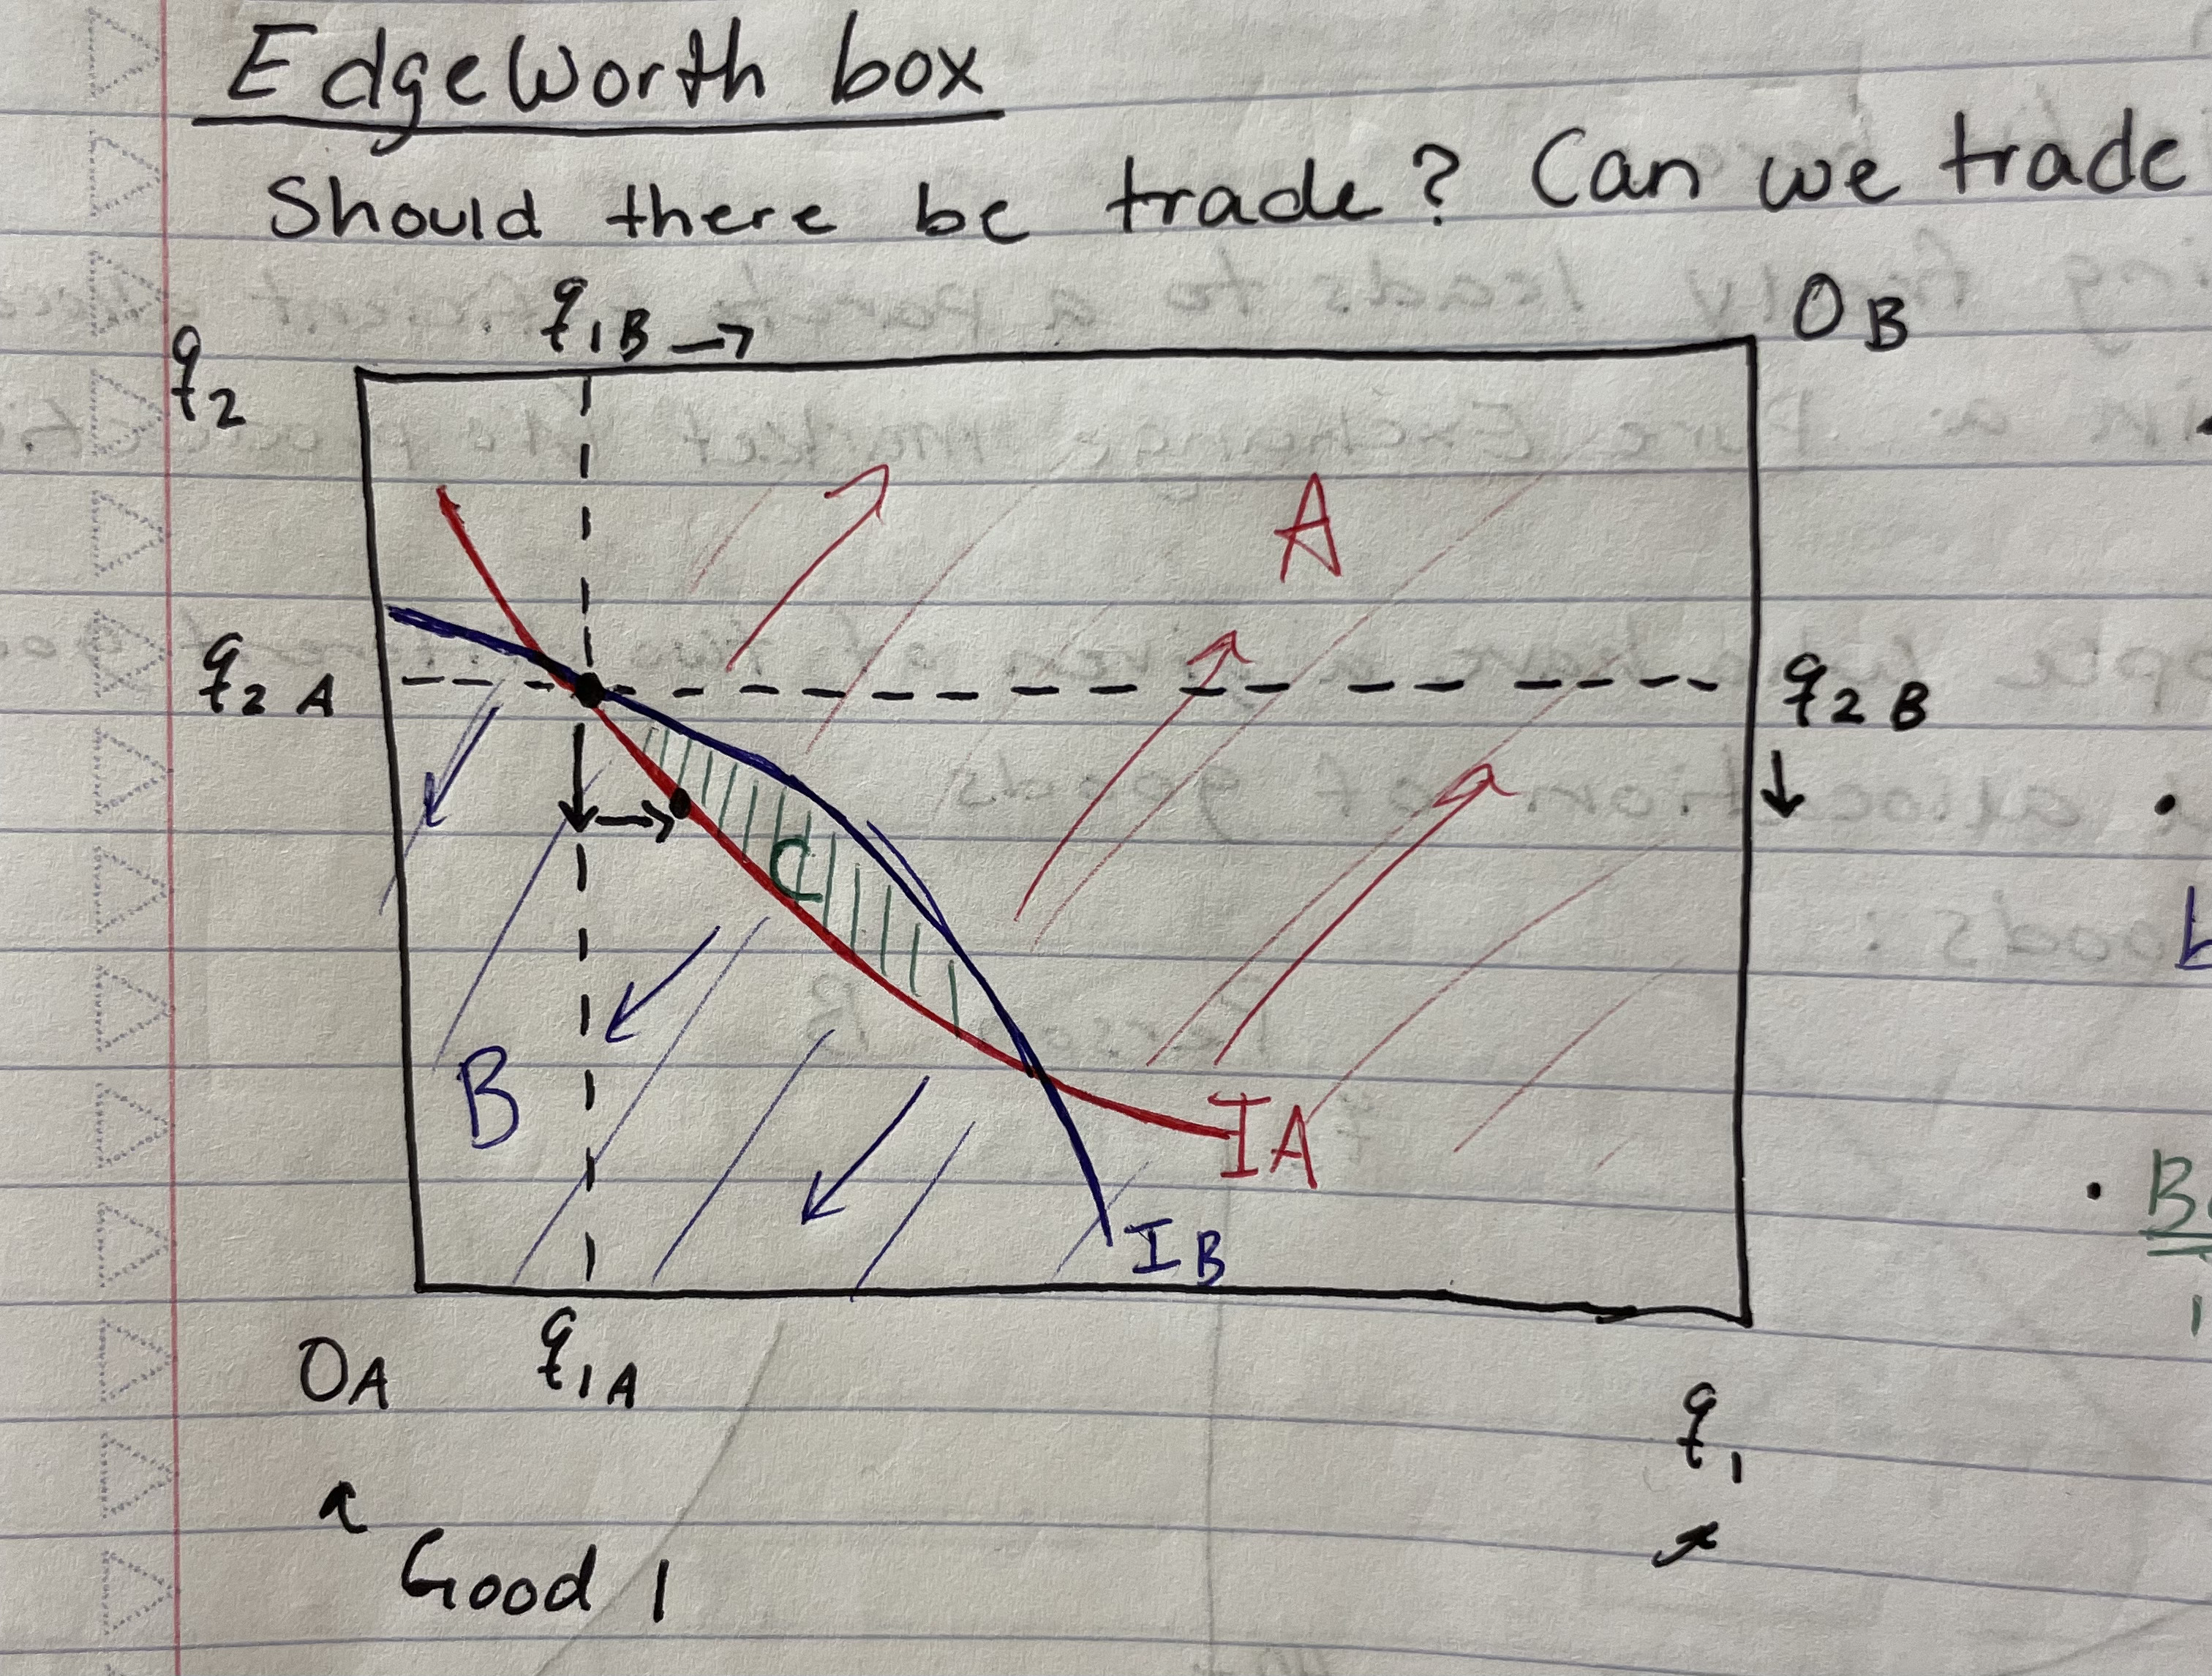 EdgeWorth box
Should there be trade? Can we trade
q1B →
OB
q2
A
q2A
q2B
↓
C
B
IA
IB
OA
q1A
q1
Good 1